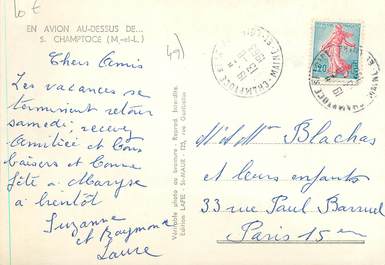 10 €
EN AVION AU-DESSUS DE...
S. CHAMPTOCE (M.-et-L.)
49)
Chers Amis
Les vacances se
terminent retour
samedi, recevez
Amitiée et Bons
baisers et Bonne
fête à Maryse
à bientôt
Suzanne
et Raymond
Laure
Véritable photo au bromure - Reprod. interdite.
Edition LAPIE - St-MAUR - 123, rue
0,20
CHAMPTOCE
MAINE-ET-LOIRE
Mr et Mme Blachas
et leurs enfants
33 rue Paul Barruel
Paris 15 em